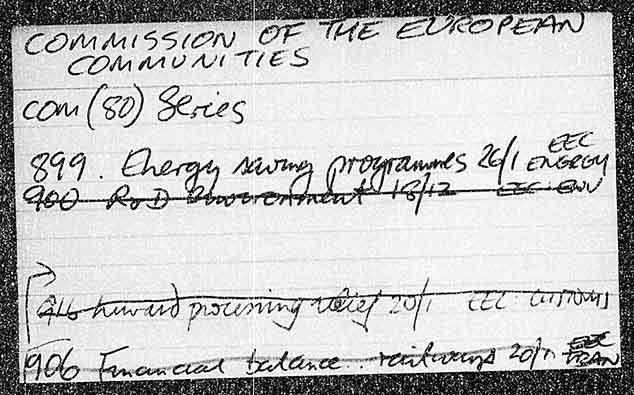 COMMISSION OF THE EUROPEAN
COMMUNITIES
COM (80) Series
899. Energy saving programmes 26/1 EEC ENERGY
900 R & D Environment 18/12 EEC ENV
916 Inward processing relief 20/1 EEC CUSTOMS
906 Financial balance.. railways 20/1 EEC TRAN